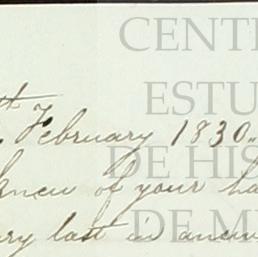 CENT
ESTU
th February 1830.
DE HIS
knew of your ha
DE M
ry last in answ